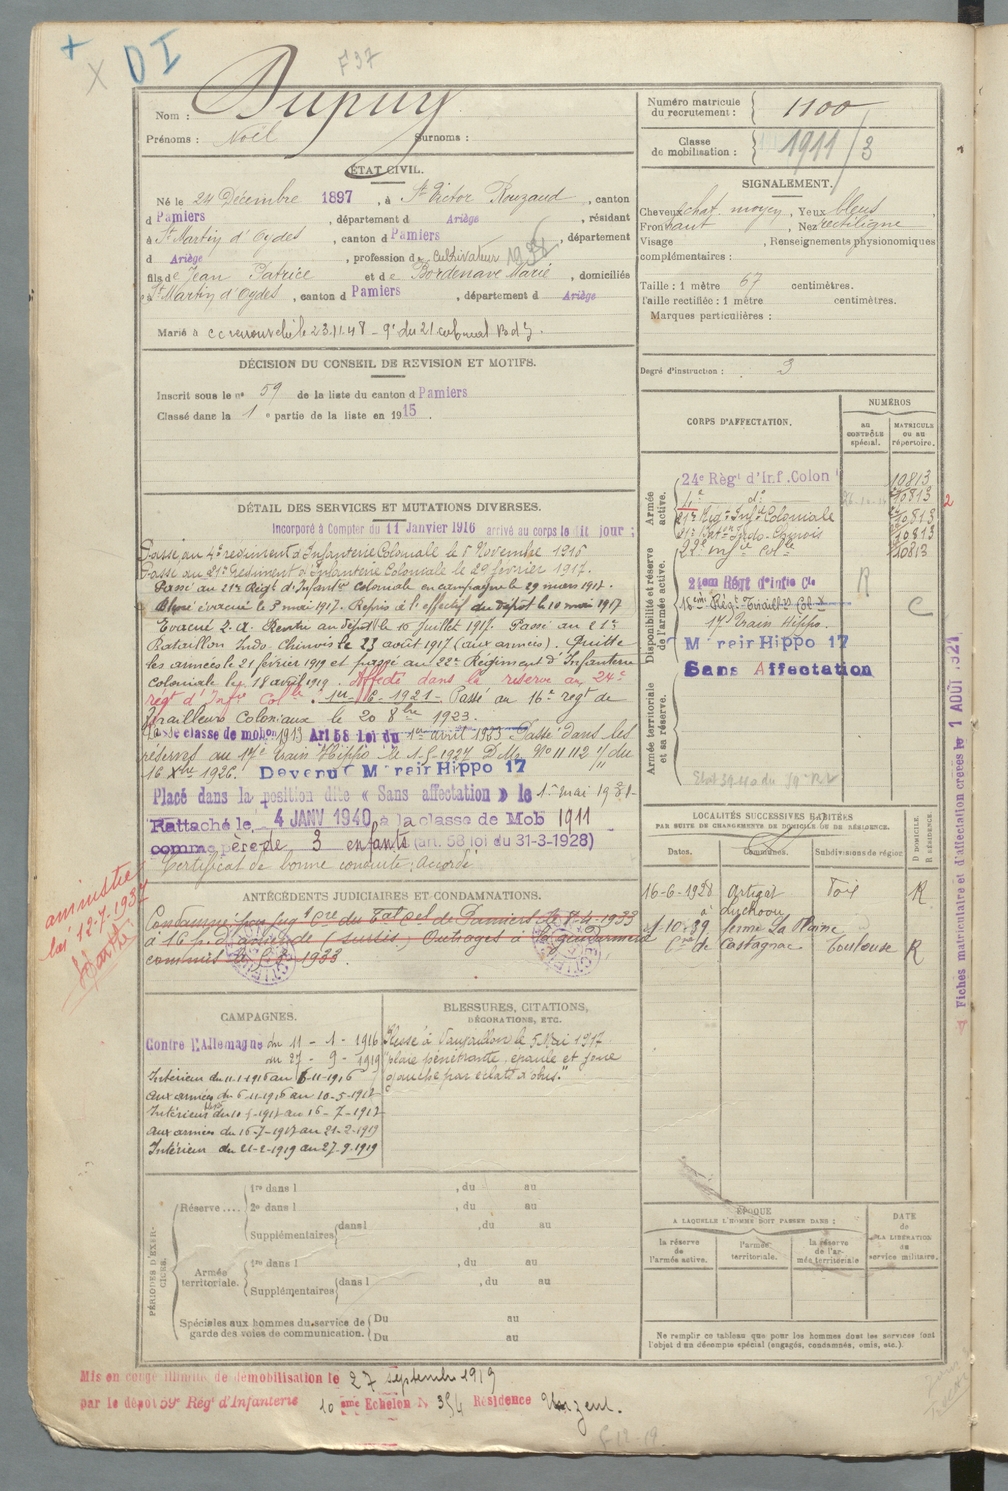 + X D I
F 37
Nom : Dupuy
Prénoms : Noël Surnoms :
Numéro matricule du recrutement : 1100
Classe de mobilisation : 1911/3
ÉTAT CIVIL.
Né le 24 Décembre 1897, à St Victor Rouzaud, canton
d Pamiers, département d Ariège, résidant
à St Martin d'Oydes, canton d Pamiers, département
d Ariège, profession de cultivateur
fils de Jean Patrice et de Bordenave Marie, domiciliés
à St Martin d'Oydes, canton d Pamiers, département d Ariège
Marié à
SIGNALEMENT.
Cheveux chat. moyen, Yeux bleus,
Front haut, Nez rectiligne
Visage , Renseignements physionomiques
complémentaires :
Taille : 1 mètre 67 centimètres.
Taille rectifiée : 1 mètre centimètres.
Marques particulières :
Degré d'instruction : 3
DÉCISION DU CONSEIL DE REVISION ET MOTIFS.
Inscrit sous le no 59 de la liste du canton d Pamiers
Classé dans la 1e partie de la liste en 1915.
CORPS D'AFFECTATION.
NUMÉROS
AU CONTRÔLE spécial.
MATRICULE OU AU répertoire.
Armée active.
24e Régt d'Inf. Colon 10813
4e do 10813 2
21e Régt Infie Coloniale 10813
21e Baton Indo-Chinois 10813
22e Infie Colle 10813
Disponibilité et réserve de l'armée active.
24em Régt d'Infie Cle R
16eme Régt Tiraillrs Col x C
17e Train Hippo.
Mreir Hippo 17
Sans Affectation
Armée territoriale et sa réserve.
DÉTAIL DES SERVICES ET MUTATIONS DIVERSES.
Incorporé à Compter du 11 Janvier 1916 arrivé au corps le dit jour ;
Passé au 4e régiment d'Infanterie Coloniale le 5 Novembre 1916
Passé au 21e Régiment d'Infanterie Coloniale le 29 février 1917.
Passé au 21e Régt d'Infantie Coloniale en campagne le 29 mars 1917.
Blessé évacué le 5 mai 1917. Repris à l'effectif du dépôt le 10 mai 1917
Evacué Z.A. Rentré au dépôt le 16 Juillet 1917. Passé au 21e
Bataillon Indo-Chinois le 23 août 1917 (aux armées). Quitte
les armées le 21 février 1919 et passé au 22e Régiment d'Infanterie
Coloniale le 18 avril 1919. Affecté dans la réserve au 24e
régt d'Infie Colle. 1er 6 1921 Passé au 16e régt de
Tirailleurs Coloniaux le 20 8bre 1923.
Passé classe de mobon 1913 Art 58 loi du 1er avril 1923 Passé dans les
réserves au 17e train Hippo le 1-5-1927 D.M. No 11.112 1/11 du
16 Xbre 1926. Devenu C Mreir Hippo 17
Placé dans la position dite « Sans affectation » le 1er mai 1931-
Rattaché le 4 JANV 1940 à la classe de Mob 1911
comme père de 3 enfants (art. 58 loi du 31-3-1928)
Certificat de bonne conduite : accordé.
LOCALITÉS SUCCESSIVES HABITÉES
PAR SUITE DE CHANGEMENTS DE DOMICILE OU DE RÉSIDENCE.
Dates. Communes. Subdivisions de région D DOMICILE. R RÉSIDENCE.
16-6-1928 Artigat Foix R
1-10-39 ferme La Plaine
Cne de Castagnac Toulouse R
ANTÉCÉDENTS JUDICIAIRES ET CONDAMNATIONS.
Condamné par jugt Cre du Tal Cel de Pamiers le 8-4-1933
à 16 f. d'amende (sursis) Outrages à la gendarmerie
commis 1933.
amnistié
loi 12-7-1937
CAMPAGNES.
Contre l'Allemagne du 11 - 1 - 1916
au 27 - 9 - 1919
Intérieur du 11-1-1916 au 5-11-1916
aux armées du 6-11-1916 au 10-5-1917
Intérieur du 10-5-1917 au 16-7-1917
aux armées du 16-7-1917 au 21-2-1919
Intérieur du 21-2-1919 au 27-9-1919
BLESSURES, CITATIONS,
DÉCORATIONS, ETC.
Blessé à Vauxaillon le 5 Mai 1917
"plaie pénétrante épaule et joue
gauche par éclats d'obus."
PÉRIODES D'EXERCICES.
Réserve .... 1re dans l , du au
2e dans l , du au
Supplémentaires dans l , du au
Armée territoriale. 1re dans l , du au
Supplémentaires dans l , du au
Spéciales aux hommes du service de garde des voies de communication. Du au
Du au
ÉPOQUE
A LAQUELLE L'HOMME DOIT PASSER DANS :
la réserve de l'armée active.
l'armée territoriale.
la réserve de l'armée territoriale
DATE de LA LIBÉRATION du service militaire.
Ne remplir ce tableau que pour les hommes dont les services font
l'objet d'un décompte spécial (engagés, condamnés, omis, etc.).
Mis en congé illimité de démobilisation le 27 septembre 1919
par le dépôt 59e Régt d'Infanterie 10 eme Echelon N 354 Résidence Unzent.
F 12-19
Fiches matriculaire et d'affectation créées le 1 AOÛT 1921